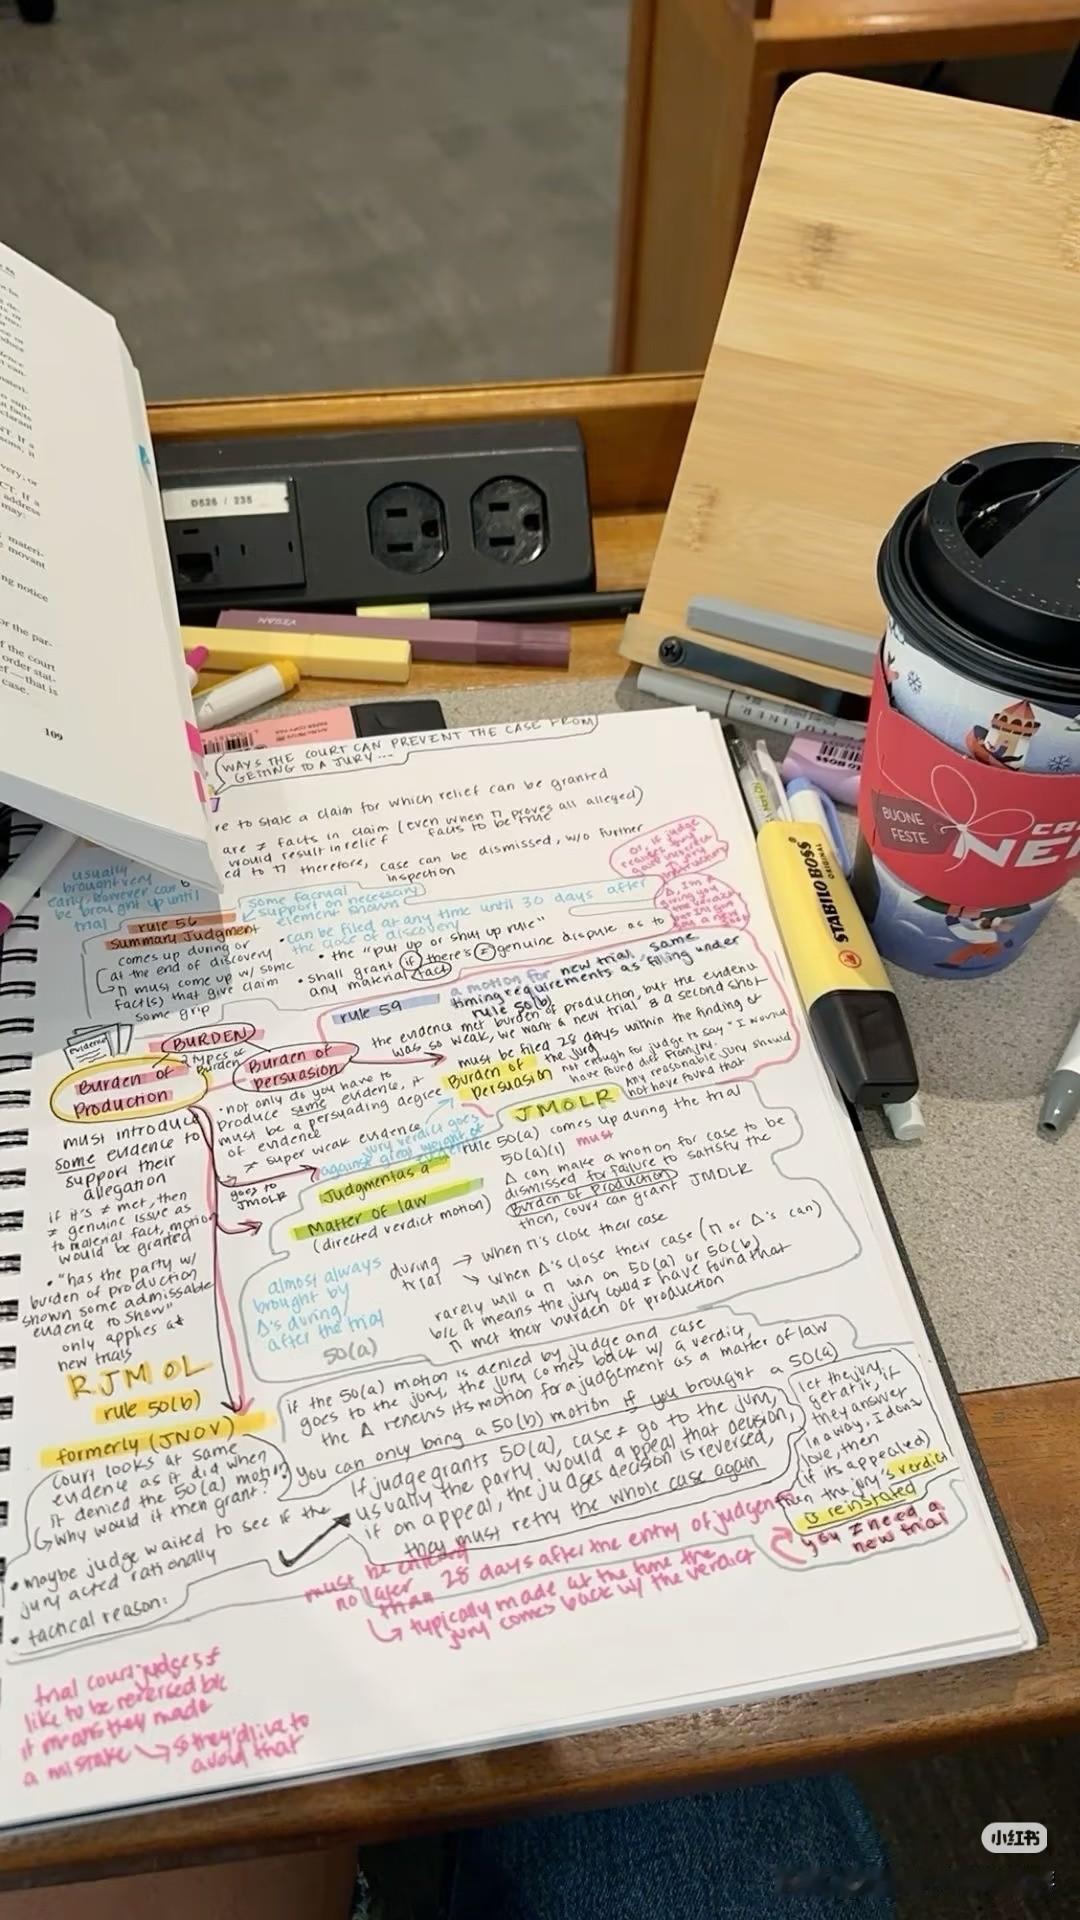 109
D526 / 235
VEGAN
WAYS THE COURT CAN PREVENT THE CASE FROM
GETTING TO A JURY...
re to state a claim for which relief can be granted
are ≠ facts in claim (even when π proves all alleged)
would result in relief
ed to π therefore, case can be dismissed, w/o further
inspection
usually
brought very
early, however can
be brought up until
trial
some factual
support on necessary
element shown
rule 56
Summary Judgment
comes up during or
at the end of discovery
π must come up w/ some
fact(s) that give claim
some grip
• can be filed at any time until 30 days after
the close of discovery
• the "put up or shut up rule"
• shall grant if there's ≠ genuine dispute as to
any material fact
or if judge
rule 59
a motion for new trial, same
timing requirements as filing under
rule 50(b)
the evidence met burden of production, but the evidence
was so weak, we want a new trial & a second shot
must be filed 28 days within the finding of
the jury
not enough for judge to say "I would
have found diff from jury.
Any reasonable jury should
not have found that
evidence
BURDEN
2 types of
burden
Burden of
Production
Burden of
persuasion
Burden of
Persuasion
• not only do you have to
produce some evidence, it
must be a persuading degree
of evidence
≠ super weak evidence
goes to
JMOLR
jury verdict goes
against great weight of
must introduce
some evidence to
support their
allegation
if it's ≠ met, then
≠ genuine issue as
to material fact, motion
would be granted
• "has the party w/
burden of production
shown some admissable
evidence to show"
only applies at
new trials
JMOLR
rule 50(a) comes up during the trial
50(a)(1) must
Δ can make a motion for case to be
dismissed for failure to satisfy the
Burden of Production
then, court can grant JMOLR
Judgment as a
Matter of law
(directed verdict motion)
almost always
brought by
Δ's during/
after the trial
50(a)
during
trial
→ when π's close their case
↘ when Δ's close their case (π or Δ's can)
rarely will a π win on 50(a) or 50(b)
b/c it means the jury could ≠ have found that
π met their burden of production
RJMOL
rule 50(b)
formerly (JNOV)
if the 50(a) motion is denied by judge and case
goes to the jury, the jury comes back w/ a verdict,
the Δ renews its motion for a judgement as a matter of law
• you can only bring a 50(b) motion if you brought a 50(a)
court looks at same
evidence as it did when
it denied the 50(a) motion
↳ why would it then grant?
• maybe judge waited to see if the
jury acted rationally
• tactical reason:
If judge grants 50(a), case ≠ go to the jury,
usually the party would appeal that decision,
if on appeal, the judges decision is reversed,
they must retry the whole case again
let the jury
get at it, if
they answer
in a way, I don't
love, then
(if its appealed)
then the jury's verdict
is reinstated
you ≠ need a
new trial
must be entered
no later
than 28 days after the entry of judgement
↳ typically made at the time the
jury comes back w/ the verdict
trial court judges ≠
like to be reversed b/c
it means they made
a mistake → so they'd like to
avoid that
STABILO BOSS
ORIGINAL
BUONE
FESTE
小红书